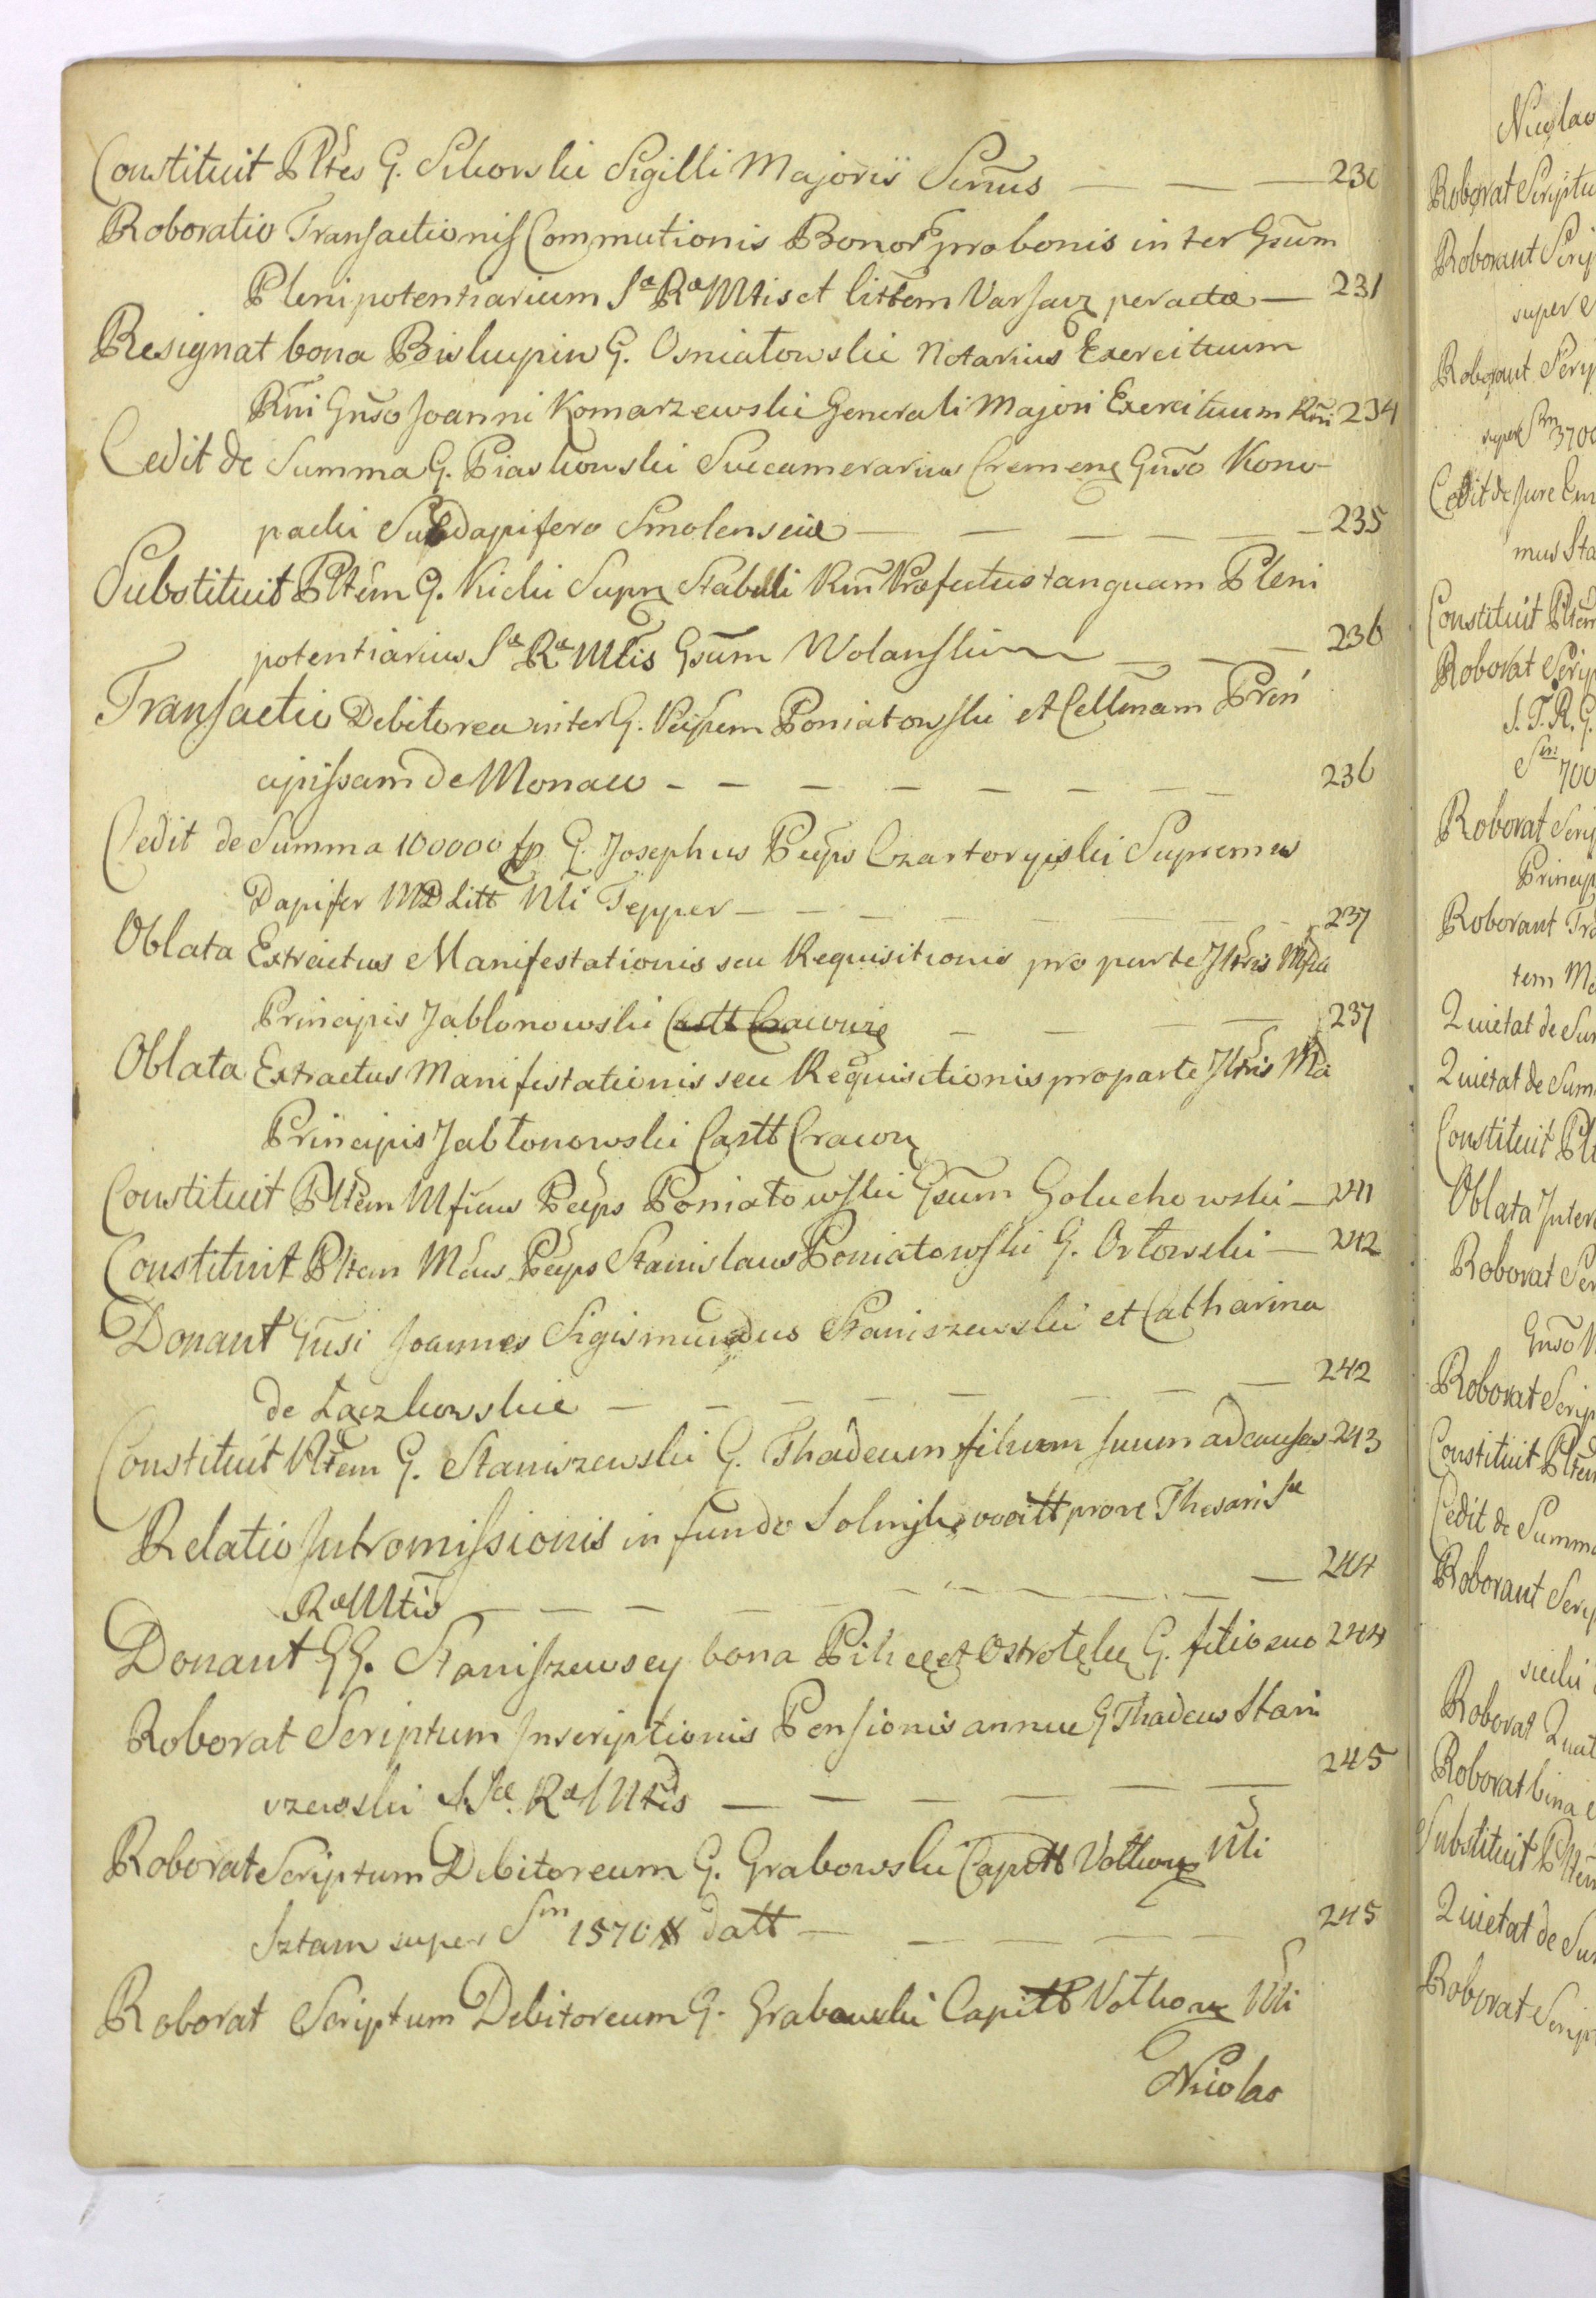 Constituit Pltes G. Sikorski Sigilli Majoris 230
Roboratio Transactionis Commutionis Bonor pro bonis inter Gsum
Plenipotentiarium Sæ Ræ Mtis et littem Varsav peractæ 231
Resignat bona Biskupin G. Ozniatowski Notarius Exercituum
Rni Gnso Joanni Komarzewski Generali Majori Exercituum Rni 234
Cedit de Summa G. Piaskowski Succamerarius Cremene Gnso Kono-
packi Subdapifero Smolensciæ 235
Substituit Pltem G. Kicki Supre Stabuli Rni Præfectus tanquam Pleni
potentiarius Sæ Ræ Mtis Gsum Wolanski 236
Transactio Debitorea inter G. Poniatowski et Cellmam Prin
cipissam de Monaco 236
Cedit de Summa 100000 fp G. Josephus Pceps Czartoryiski Supremus
Dapifer MD Litt Nli Tepper 237
Oblata Extractus Manifestationis seu Requisitionis pro parte Jltris
Principis Jablonowski Castt Cracovie 237
Oblata Extractus Manifestationis seu Requisitionis pro parte Jltris
Principis Jabłonowski Castt Cracov
Constituit Pltem Mficus Pceps Poniatowski Gsum Goluchowski 241
Constituit Pltem Mcus Pceps Stanislaus Poniatowski G. Orłowski 242
Donant Gnsi Joannes Sigismundus Staniszewski et Catharina
de Łączkowskie 242
Constituit Pltem G. Staniszewski G. Thadeum filium suum ad causas 243
Relatio Intromissionis in fundo pro Thesari Sæ
Ræ Mtis 244
Donant GG. Staniszewscy bona et G. filio suo 244
Roborat Scriptum Inscriptionis Pensionis annuæ G Thadeus Stani
szewski Sæ. Ræ Mtis 245
Roborat Scriptum Debitoreum G. Grabowski Capitt Nli
Sztam super Sm 1570 datt 245
Roborat Scriptum Debitoreum G. Grabowski Capitt Nli
Nicolao
Nicolao
Roborat Scriptu
Roborant Scrip
super
Roborant Scrip
super Sm 3700
Cedit de Jure
mus Sta
Constituit Pltem
Roborat Scrip
S. J. R. G.
Sm 700
Roborat Scrip
Princip
Roborant Tra
tem
Quietat de Sum
Quietat de Sum
Constituit Plt
Oblata Inter
Roborat Scr
Gnso
Roborat Scrip
Constituit Pltem
Cedit de Summa
Roborant Scrip
Roborat Quiet
Roborat bina
Substituit Pltem
Quietat de Sum
Roborat Scrip